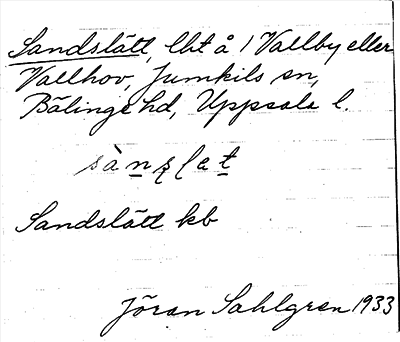 Sandslätt, lht å 1 Vallby eller
Vallhov, Jumkils sn,
Bälinge hd, Uppsala l.
Sandslätt kb
Jöran Sahlgren 1933